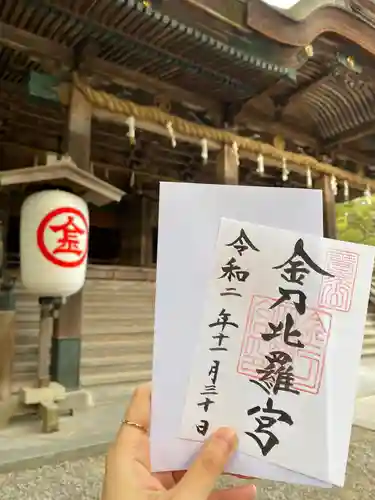 金刀比羅宮
令和二年十一月三十日
金